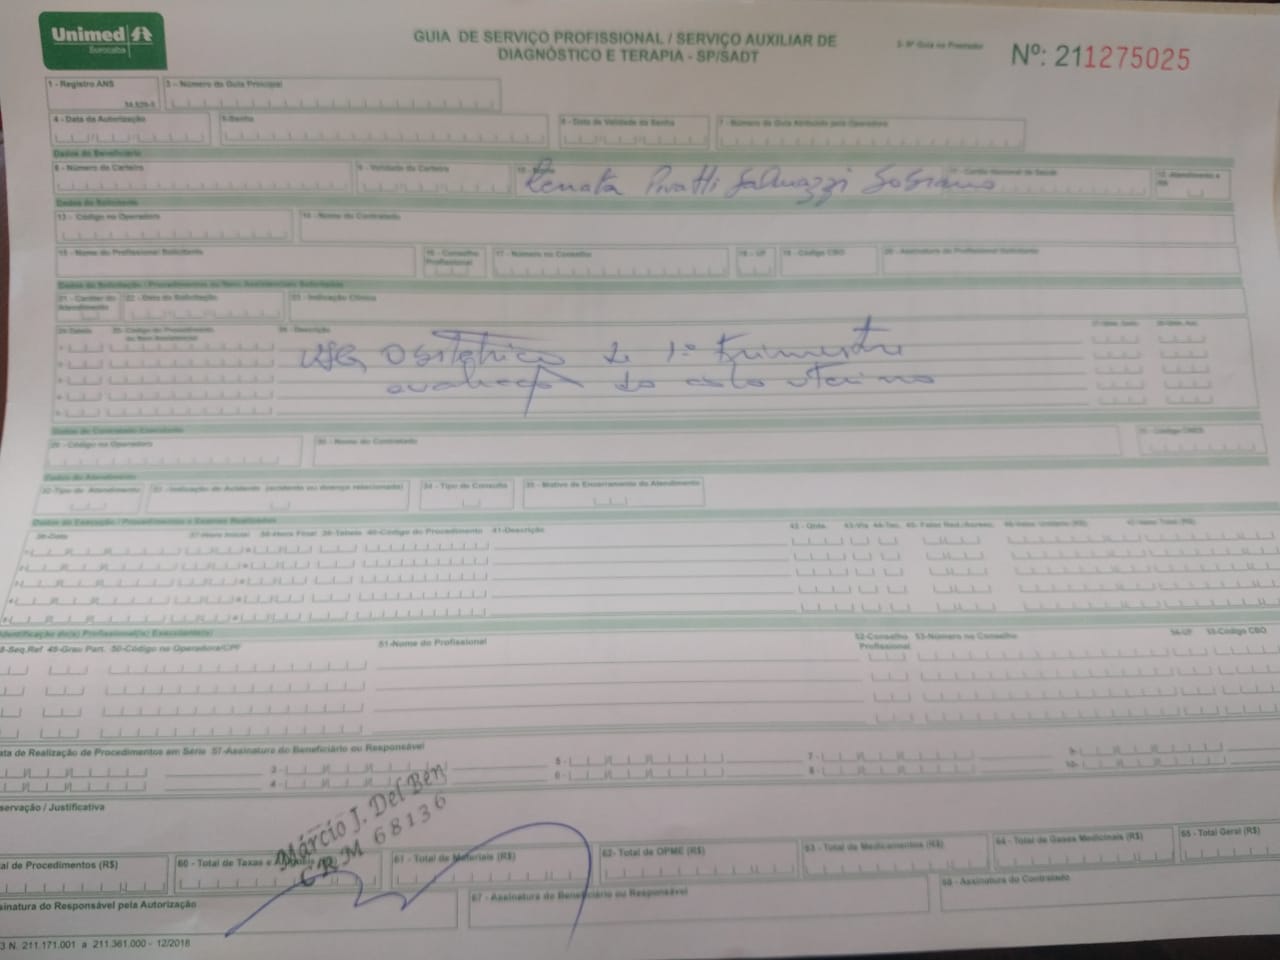 Unimed
Sorocaba
GUIA DE SERVIÇO PROFISSIONAL / SERVIÇO AUXILIAR DE
DIAGNÓSTICO E TERAPIA - SP/SADT
2- Nº Guia no Prestador
Nº: 211275025
1 - Registro ANS
3 - Número da Guia Principal
4 - Data da Autorização
5-Senha
6 - Data de Validade da Senha
7 - Número da Guia Atribuído pela Operadora
Dados do Beneficiário
8 - Número da Carteira
9 - Validade da Carteira
10 - Nome
Renata
11 - Cartão Nacional de Saúde
12 - Atendimento a RN
Dados do Solicitante
13 - Código na Operadora
14 - Nome do Contratado
15 - Nome do Profissional Solicitante
16 - Conselho Profissional
17 - Número no Conselho
18 - UF
19 - Código CBO
20 - Assinatura do Profissional Solicitante
Dados da Solicitação / Procedimentos ou Itens Assistenciais Solicitados
21 - Caráter do Atendimento
22 - Data da Solicitação
23 - Indicação Clínica
24-Tabela
25- Código do Procedimento ou Item Assistencial
26 - Descrição
USG Obstétrico de 1º trimestre
avaliação do colo uterino
Dados do Contratado Executante
29 - Código na Operadora
30 - Nome do Contratado
31 - Código CNES
Dados do Atendimento
32-Tipo de Atendimento
33 - Indicação de Acidente (acidente ou doença relacionada)
34 - Tipo de Consulta
35 - Motivo de Encerramento do Atendimento
Dados da Execução / Procedimentos e Exames Realizados
36-Data
37-Hora Inicial
38-Hora Final
39-Tabela
40-Código do Procedimento
41-Descrição
42 - Qtde.
43-Via
44-Tec.
45- Fator Red./Acresc.
46-Valor Unitário (R$)
47-Valor Total (R$)
Identificação do(s) Profissional(is) Executante(s)
8-Seq.Ref
49-Grau Part.
50-Código na Operadora/CPF
51-Nome do Profissional
52-Conselho Profissional
53-Número no Conselho
54-UF
55-Código CBO
ata de Realização de Procedimentos em Série
57-Assinatura do Beneficiário ou Responsável
3 -
5 -
7 -
9-
4 -
6 -
8 -
10-
servação / Justificativa
Márcio J. Del Ben
CRM 68136
al de Procedimentos (R$)
60 - Total de Taxas e
61 - Total de Materiais (R$)
62- Total de OPME (R$)
63 - Total de Medicamentos (R$)
64 - Total de Gases Medicinais (R$)
65 - Total Geral (R$)
sinatura do Responsável pela Autorização
67 - Assinatura do Beneficiário ou Responsável
68 - Assinatura do Contratado
3 N. 211.171.001 a 211.361.000 - 12/2018